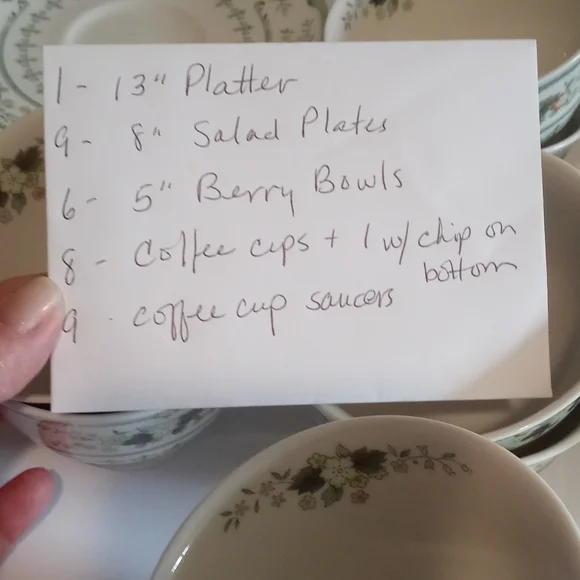 1 - 13" Platter
9 - 8" Salad Plates
6 - 5" Berry Bowls
8 - Coffee cups + 1 w/ chip on bottom
9 - coffee cup saucers